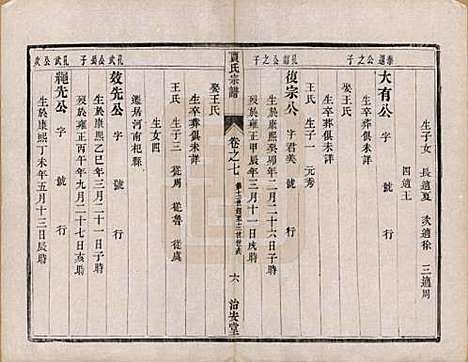 生子女 長適夏 次適徐 三適周
四適王
泰運公之子
大有公 字 號 行
生卒葬俱未詳
娶王氏
生卒葬俱未詳
生子一 元秀
孔韶公之子
復宗公 字君美 號 行
生於康熙癸卯年二月二十六日子時
歿於雍正甲辰年三月十一日戌時
賈氏宗譜
卷之七
六
治安堂
生卒葬俱未詳
娶王氏
生卒葬俱未詳
王氏 生子三 從周 從魯 從虞
生女四
遷居河南杞縣
孔武公長子
效先公 字 號 行
生於康熙乙巳年三月二十一日子時
歿於雍正丙午年九月二十七日亥時
孔武公次子
繩先公 字 號 行
生於康熙丁未年五月十三日辰時